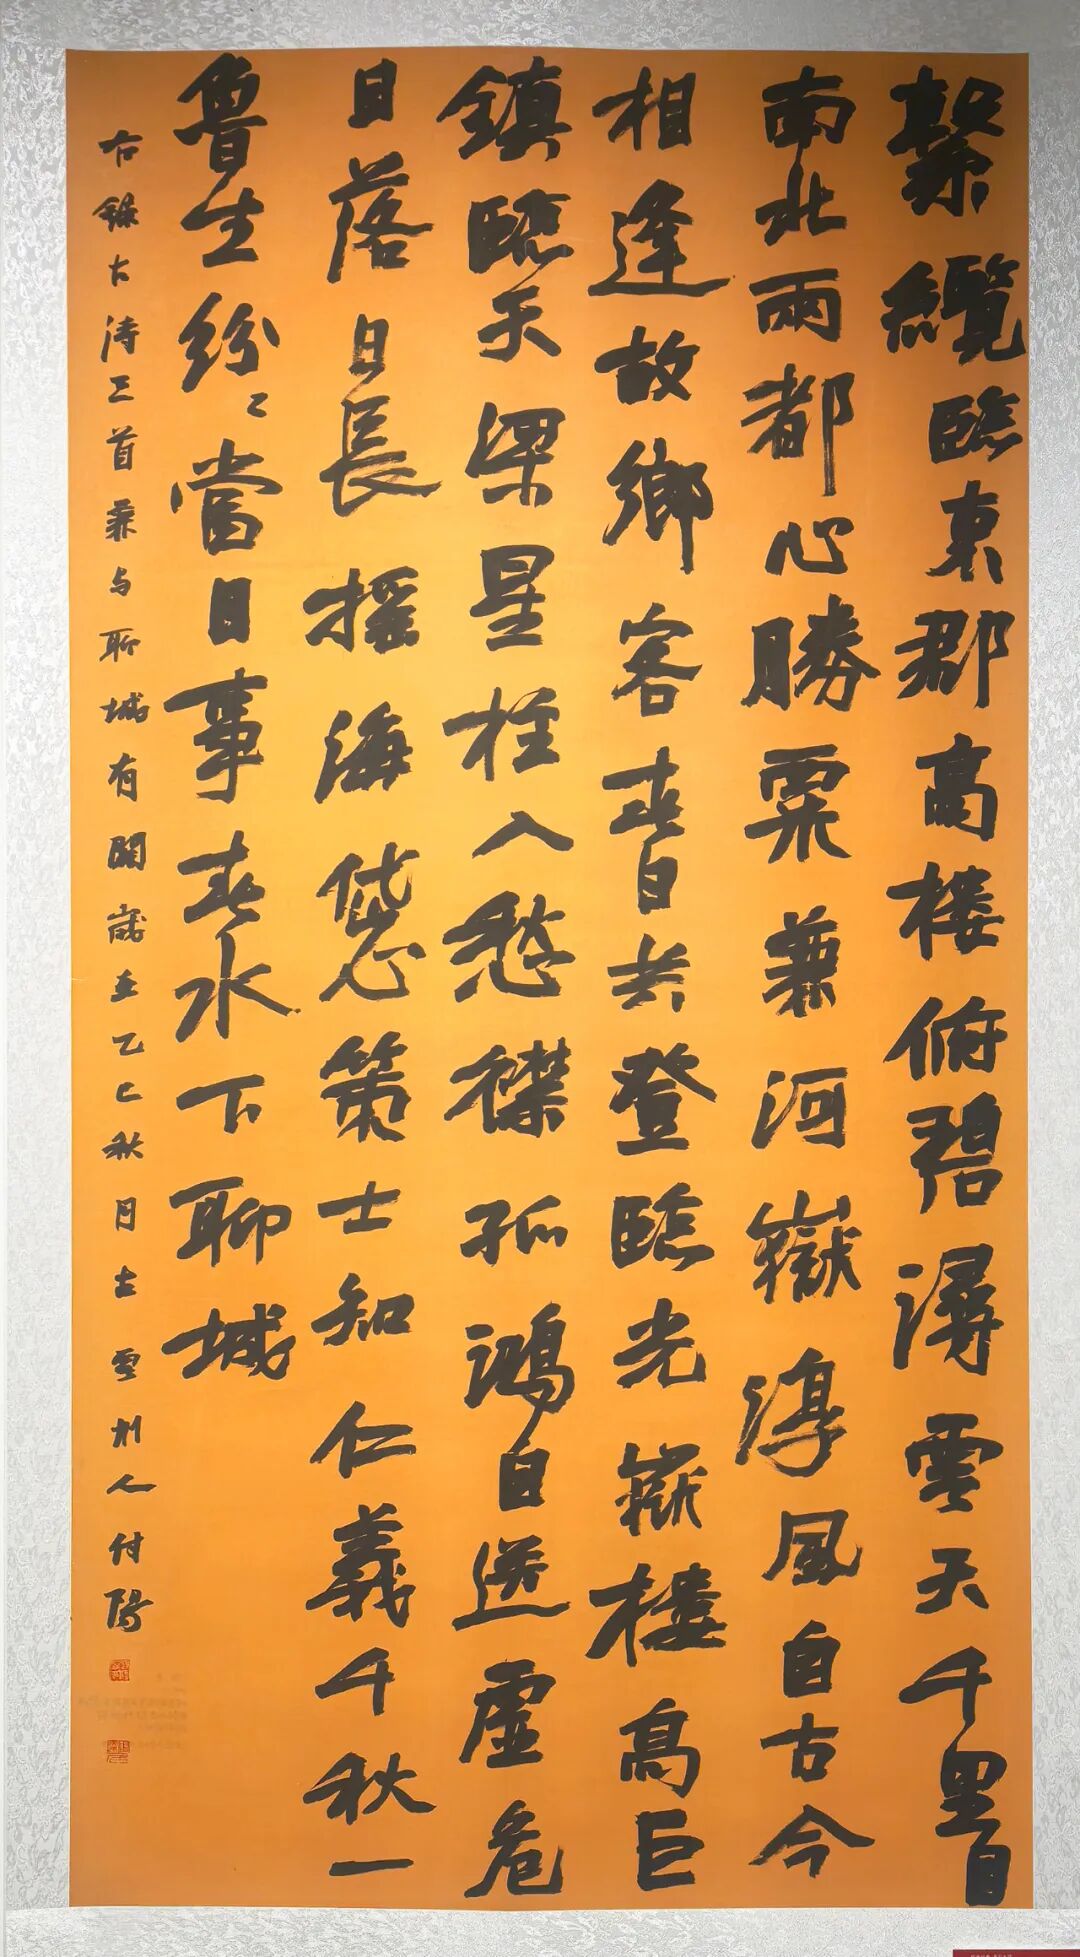 繫纜臨東郡高樓俯碧潯雲天千里目
南北兩都心勝粟兼河嶽淳風自古今
相逢故鄉客春日共登臨光嶽樓高巨
鎮臨天梁星柱入愁襟孤鴻自送虛危
日落日長搖海岱策士知仁義千秋一
魯生紛〻當日事春水下聊城
右錄古詩三首兼与聊城有關歲在乙巳秋月古雲州人付陽